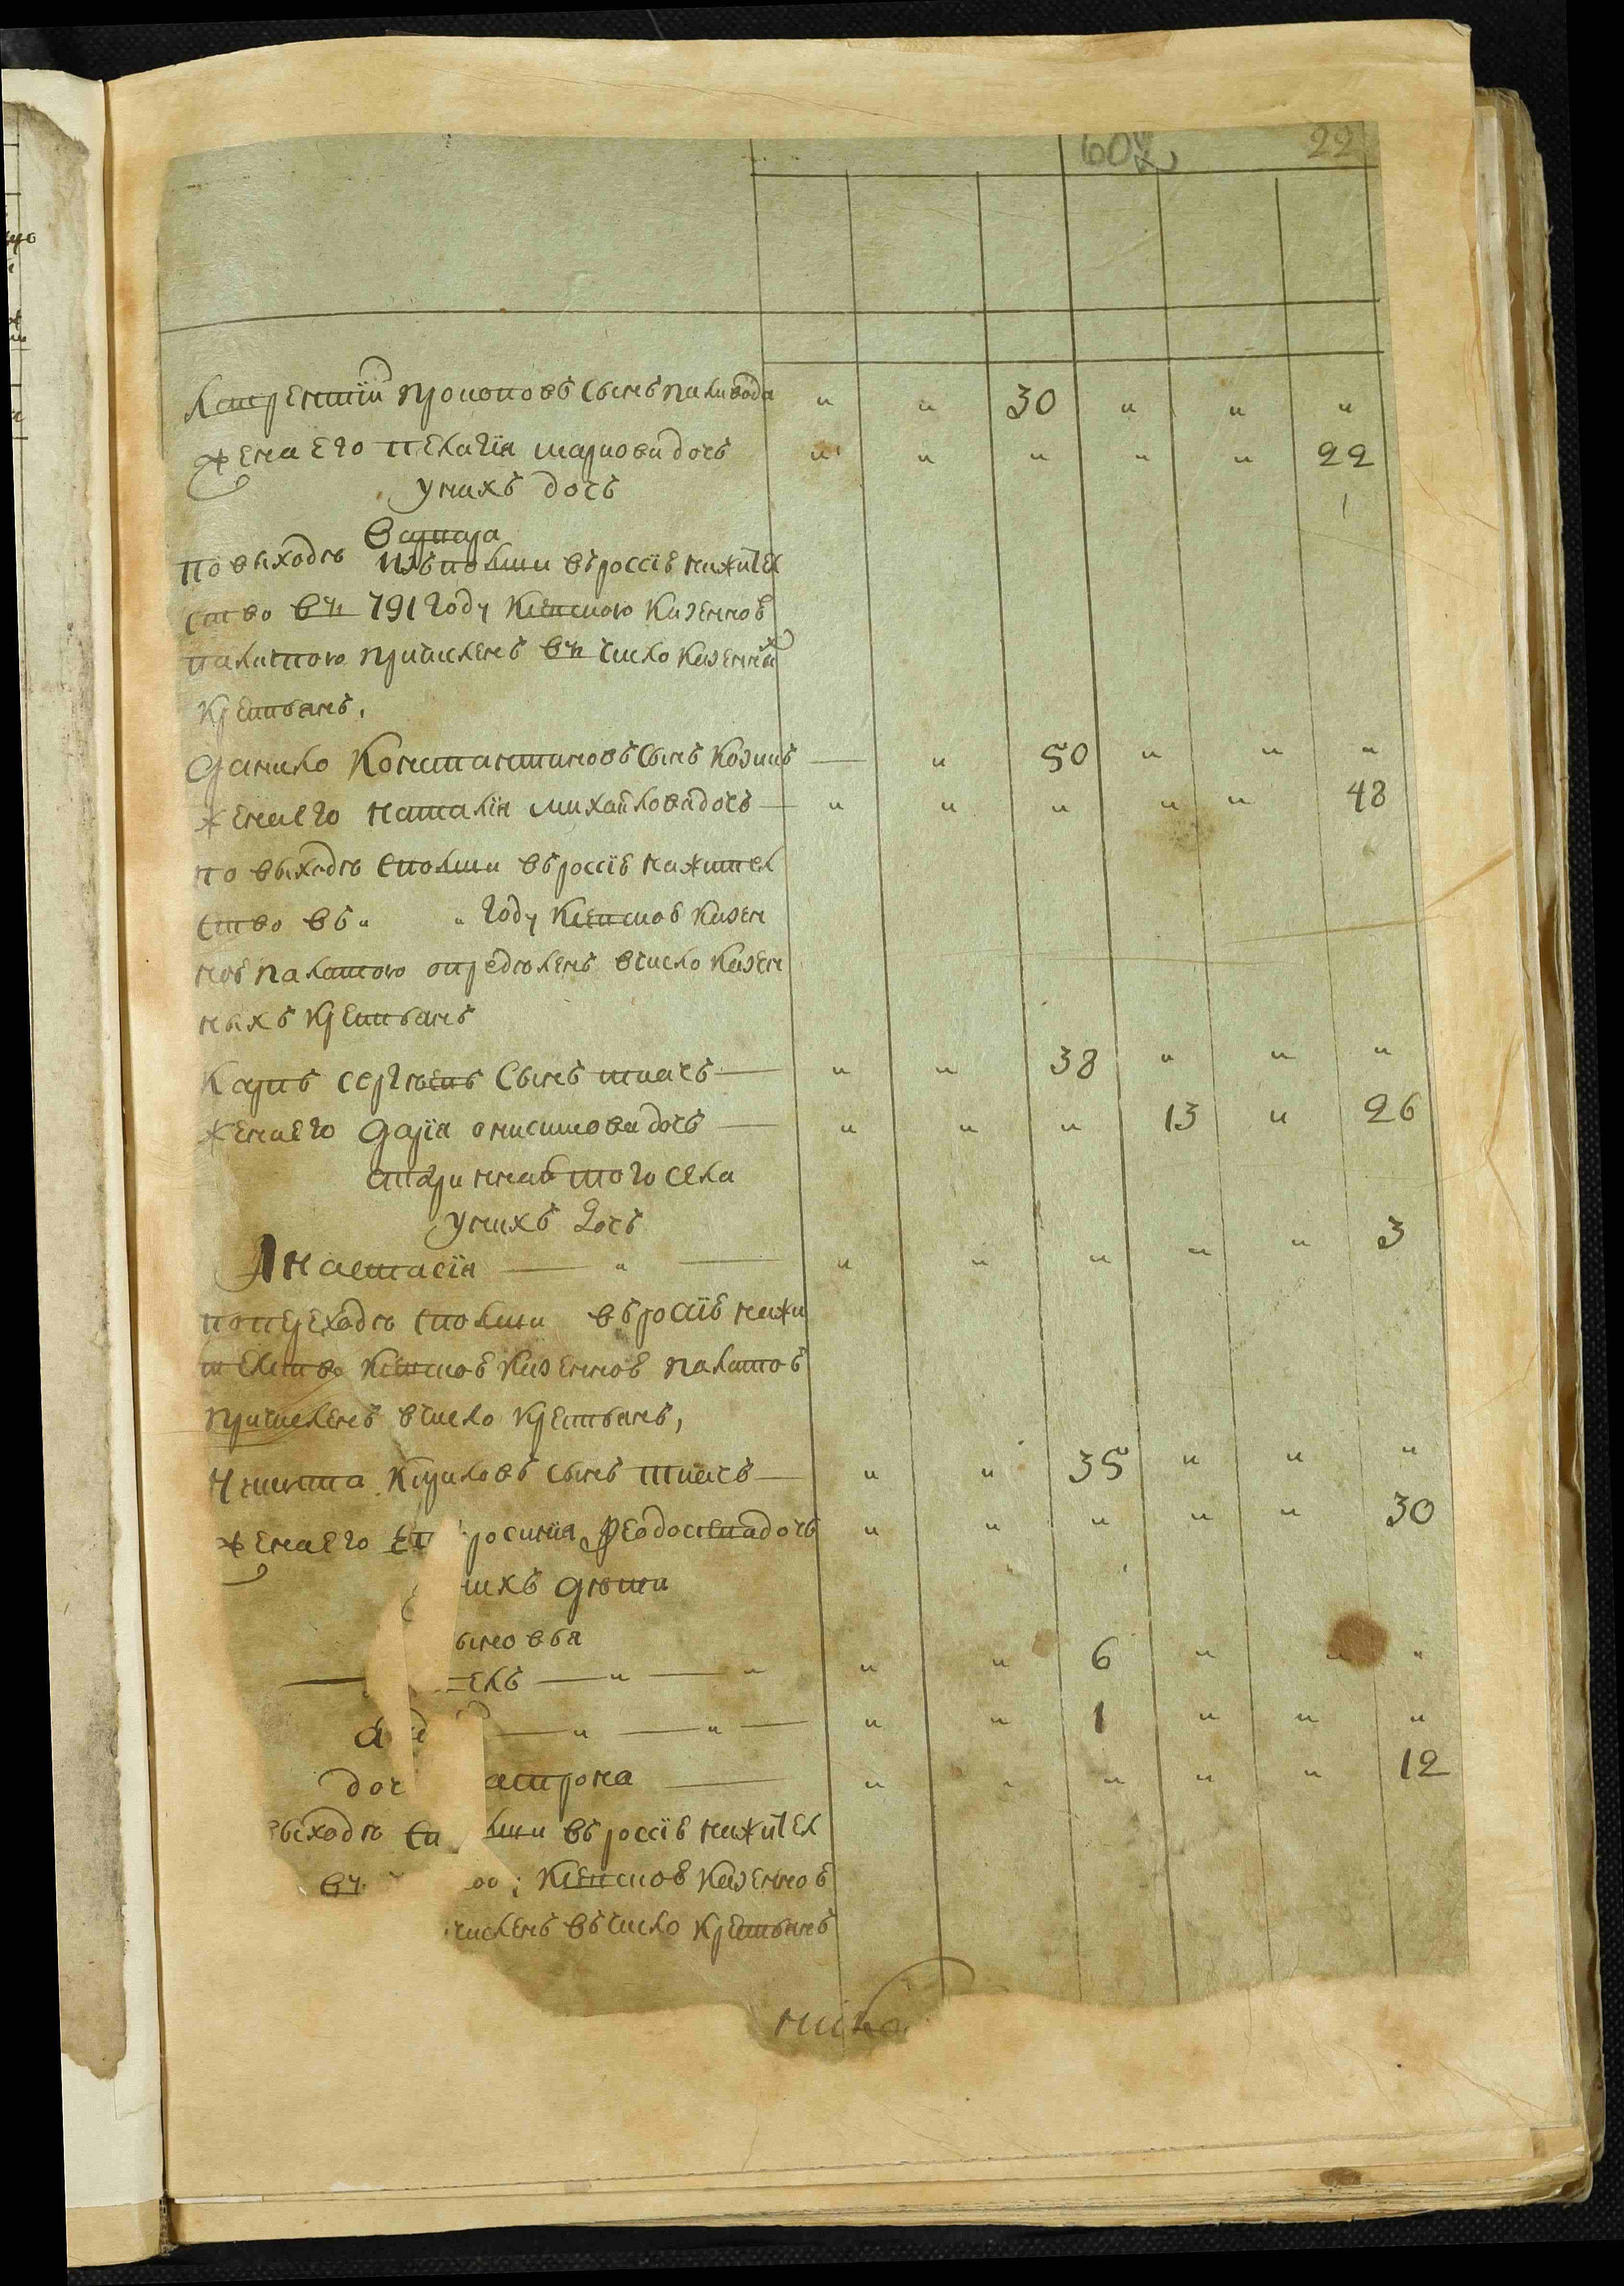 602 22
Лаврентий Прокоповъ сынъ паливода " " 30 " " "
жена его Пелагія маркова дочь " " " " " 22
у нихъ дочь 1
Варвара
по выходѣ изъ полши въ россіе на жител
ство въ 791 году Кіевскою казенною
палатою причисленъ въ число казенных
крестьянъ,
Данило Константиновъ сынъ Козинъ — " 50 " " "
жена его наталія михайлова дочь — " " " " " 48
по выходѣ сполши въ россіе на жител
ство въ " " году Кіевскою казен
ною палатою опредѣленъ вчисло казен
ныхъ крестьянъ
Карпъ сергѣевъ сынъ ткачъ — " " 38 " " "
жена его Дарія онисимова дочь — " " " 13 " 26
старинная того села
у нихъ дочь
Анастасія — " — " " " " " 3
по переходѣ сполши въ россіе на жи
телство Кіевскою казенною палатою
причисленъ вчисло крестьянъ,
Никита Кириловъ сынъ ткачъ — " " 35 " " "
жена его Ев росинія Феодосиева дочь " " " " " 30
нихъ дѣти
ыновья
елъ — " — " " " 6 " " "
— " — " — " " 1 " " "
доч атрона — " " " " " 12
выходѣ сп лши въ россіе на жител
въ Кіевскою казенною
численъ въ число крестьянъ